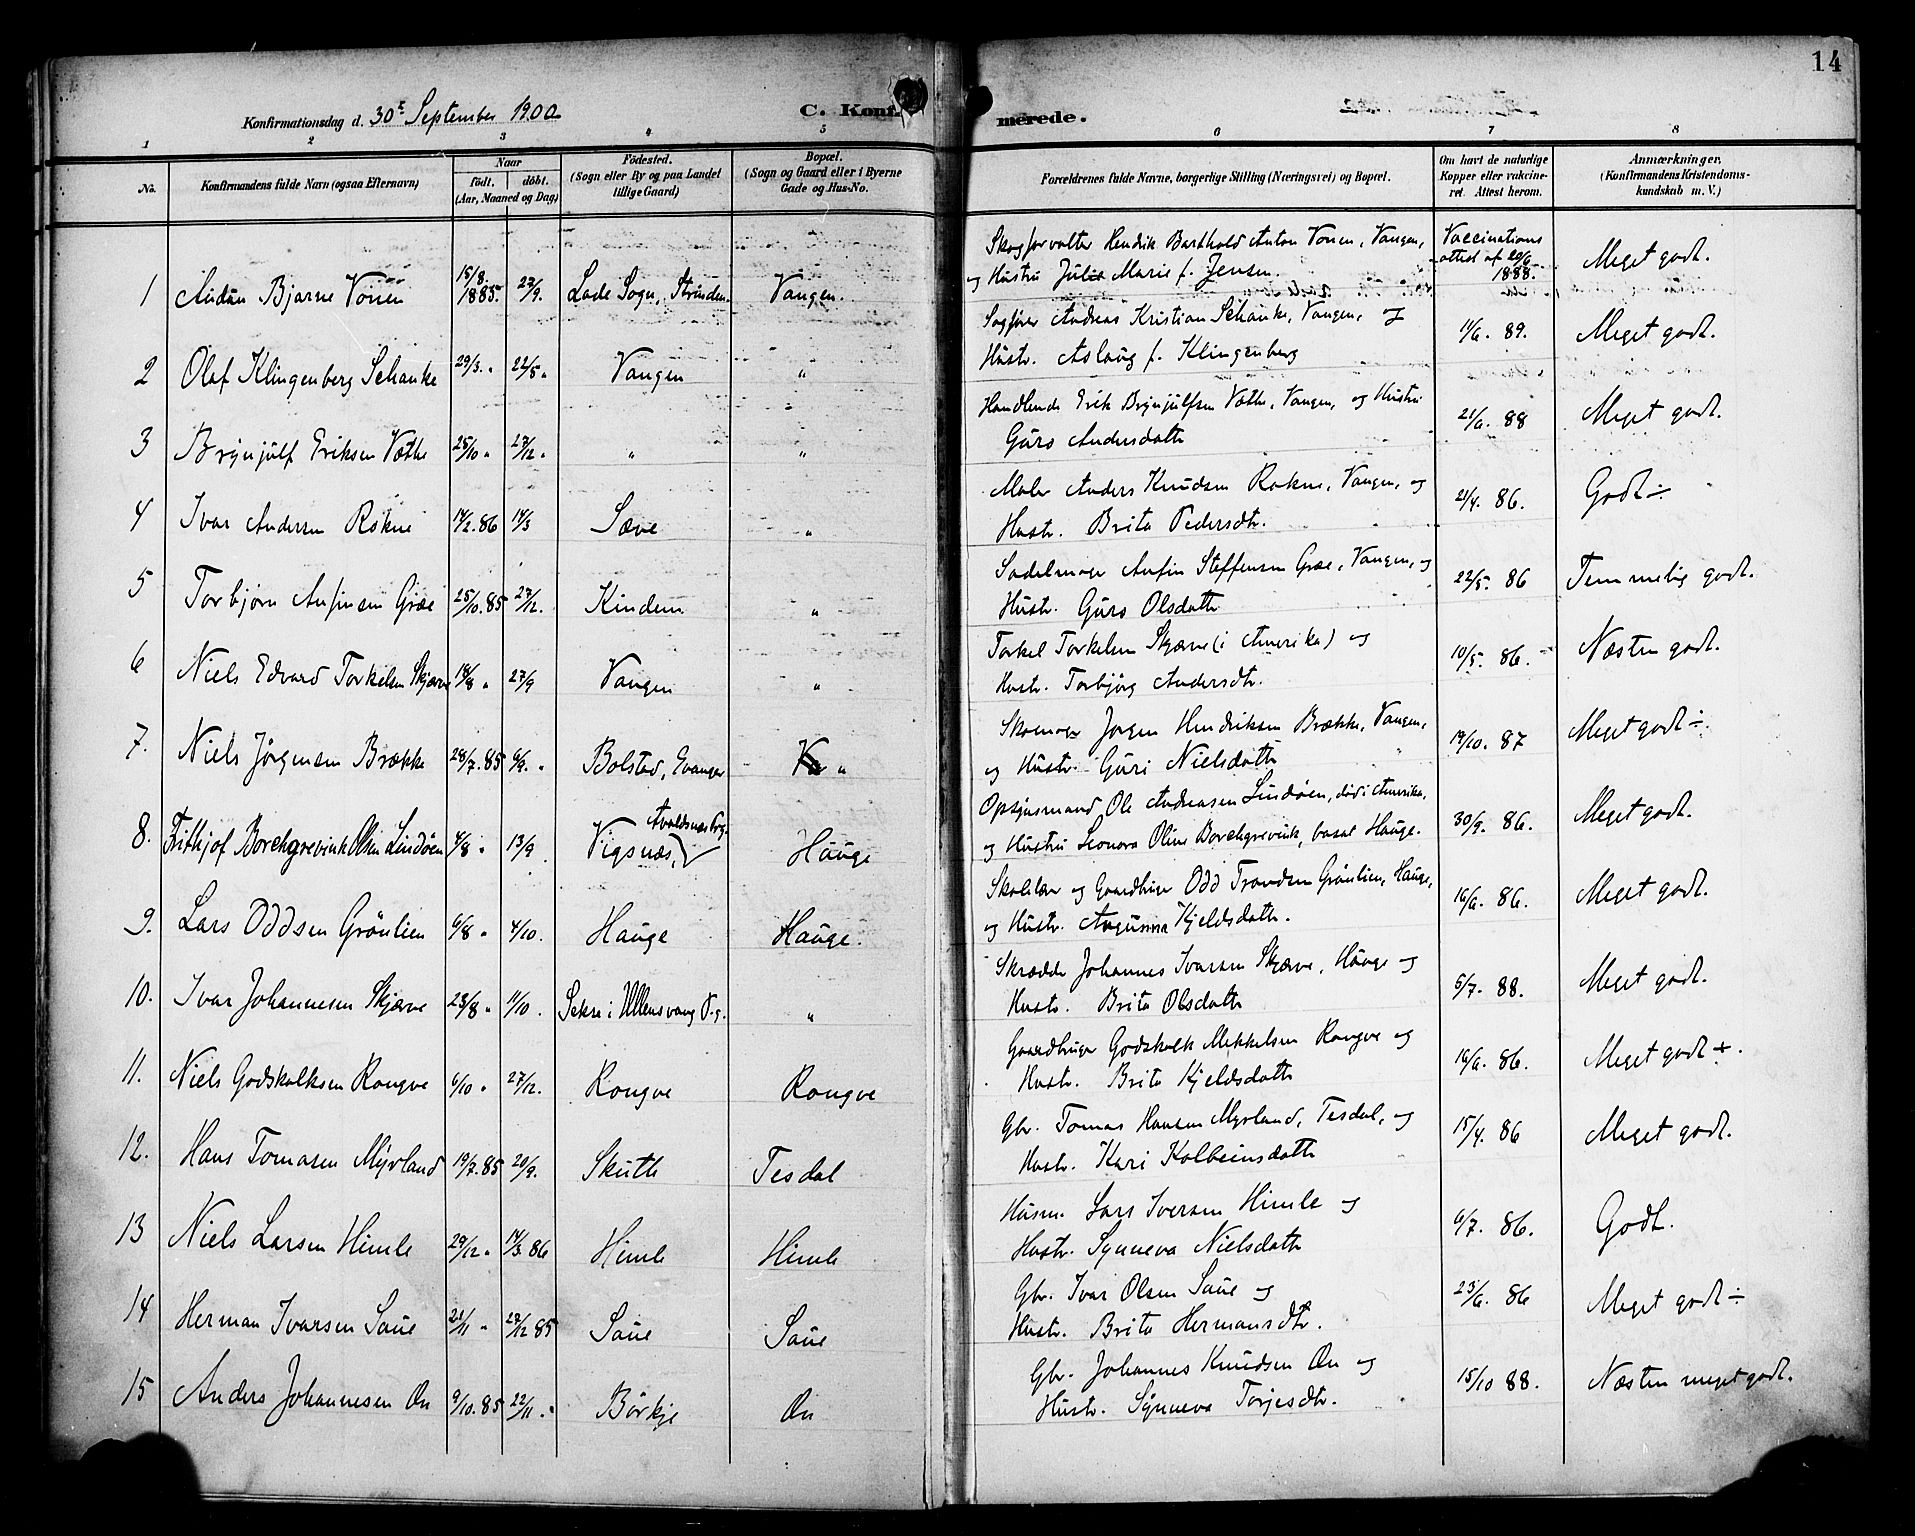 14
Konfirmationsdag d. 30te September 1900
C. Konf.
merede.
1 2 3 4 5 6 7 8
No.
Konfirmandens fulde Navn (ogsaa Efternavn)
Naar
født.
døbt.
(Aar, Maaned og Dag)
Fødested.
(Sogn eller By og paa Landet
tillige Gaard)
Bopæl.
(Sogn og Gaard eller i Byerne
Gade og Hus-No.
Forældrenes fulde Navne, borgerlige Stilling (Næringsvei) og Bopæl.
Om havt de naturlige
Kopper eller vakcine-
ret. Attest herom.
Anmærkninger.
(Konfirmandens Kristendoms-
kundskab m. V.)
Skogforvalter Hendrik Barthold Anton Vonen, Vangen, Vaccinations
og Hustru Julie Marie f. Jensen. attest af 20/6 1888. Meget godt.
1 Audun Bjarne Vonen 18/8. 1885. 27/9. Lade Sogn, Strinden. Vangen.
Sagfører Andreas Kristian Schanke, Vangen, og 11/6. 89. Meget godt.
Hustr. Aslaug f. Klingenberg
2 Olaf Klingenberg Schanke 29/3. " 22/5 " Vangen "
Handlende Erik Brynjulfsen Væthe, Vangen, og Hustru 21/6. 88 Meget godt.
Guro Andersdatter
3 Brynjulf Eriksen Væthe 25/10 " 27/12 " " "
Maler Anders Knudsen Rokne, Vangen, og 21/4. 86. Godt ÷
Hustr. Brita Pedersdtr.
4 Ivar Andersen Rokne 14/2. 86 14/3 Sæve "
Sadelmager Anfin Steffensen Græe, Vangen, og 22/5. 86 Temmelig godt.
Hustr. Guro Olsdatter
5 Torbjørn Anfinsen Græe 25/10. 85 27/12. Kindem "
Torkel Torkelsen Skjerve (i Amerika) og 10/5. 86. Næsten godt.
Hustr. Torbjørg Andersdtr.
6 Niels Edvard Torkelsen Skjerve 18/8 " 27/9 Vangen "
Skomager Jørgen Hendriksen Brække, Vangen, 19/10. 87 Meget godt ÷.
og Hustr. Guri Nielsdatter
7. Niels Jørgensen Brække 28/7. 85 6/9. " Bolstad, Evanger "
Opsynsmand Ole Andreasen Lindøen, død i Amerika, 30/9. 86. Meget godt.
og Hustru Leonora Oline Borchgrevink, bosat Hauge.
8. Frithjof Borchgrevink Olsen Lindøen 4/8 " 13/9 Vigsnæs, Avaldsnæs Prg. Hauge
Skolelær. og Gaardbruger Odd Trondsen Grønlien, Hauge, 16/6. 86. Meget godt.
og Hustr. Kjeldsdatter.
9. Lars Oddsen Grønlien 6/8 " 4/10. Hauge Hauge.
Skrædder Johannes Ivarsen Skjerve, Hauge og 6/7. 88. Meget godt.
Hustr. Brita Olsdatter
10. Ivar Johannesen Skjerve 23/8 " 11/10. Sekse i Ullensvang P.g. "
Gaardbruger Godskalk Mikkelsen Rongve og 16/6. 86. Meget godt +.
Hustr. Brita Kjeldsdatter
11. Niels Godskalksen Rongve 6/10 " 27/12. Rongve Rongve
Gbr. Tomas Hansen Myrland, Tesdal, og 15/4. 86 Meget godt.
Hustr. Kari Kolbeinsdatter
12. Hans Tomasen Myrland 19/7. 85 20/9. Skutle Tesdal
Husm. Lars Iversen Himle og 6/7. 86. Godt.
Hustr. Synneva Nielsdatter
13 Niels Larsen Himle 29/12. " 14/3 86 Himle Himle
Gbr. Ivar Olsen Saue og 23/6. 86 Meget godt ÷
Hustr. Brita Hermansdtr.
14 Herman Ivarsen Saue 21/11 " 27/12 85 Saue Saue
Gbr. Johannes Knudsen Øn og 15/10 88. Næsten meget godt.
Hustr. Synneva Torjesdtr.
15 Anders Johannesen Øn 9/10. 85 22/11. " Børkje Øn